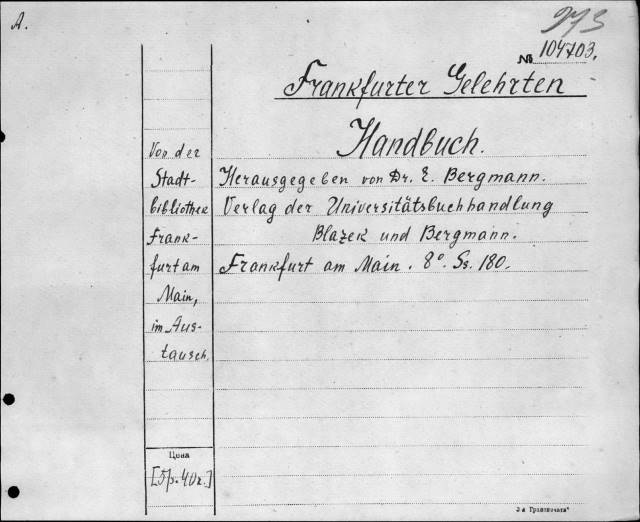 A.
973
№ 104703.
Frankfurter Gelehrten
Handbuch.
Von der
Stadt-
bibliothek
Frank-
furt am
Main,
im Aus-
tausch.
Herausgegeben von Dr. E. Bergmann.
Verlag der Universitätsbuchhandlung
Blazek und Bergmann.
Frankfurt am Main. 8°. Ss. 180.
Цена
[5р. 40к.]
3-я Гранпечать"